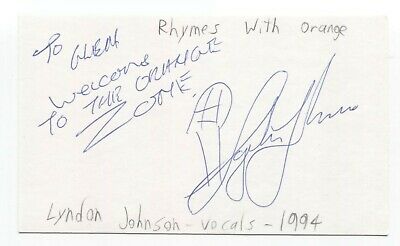 Rhymes With Orange
TO GLEN
WELCOME
TO THE ORANGE
ZONE
Lyndon Johnson - vocals - 1994